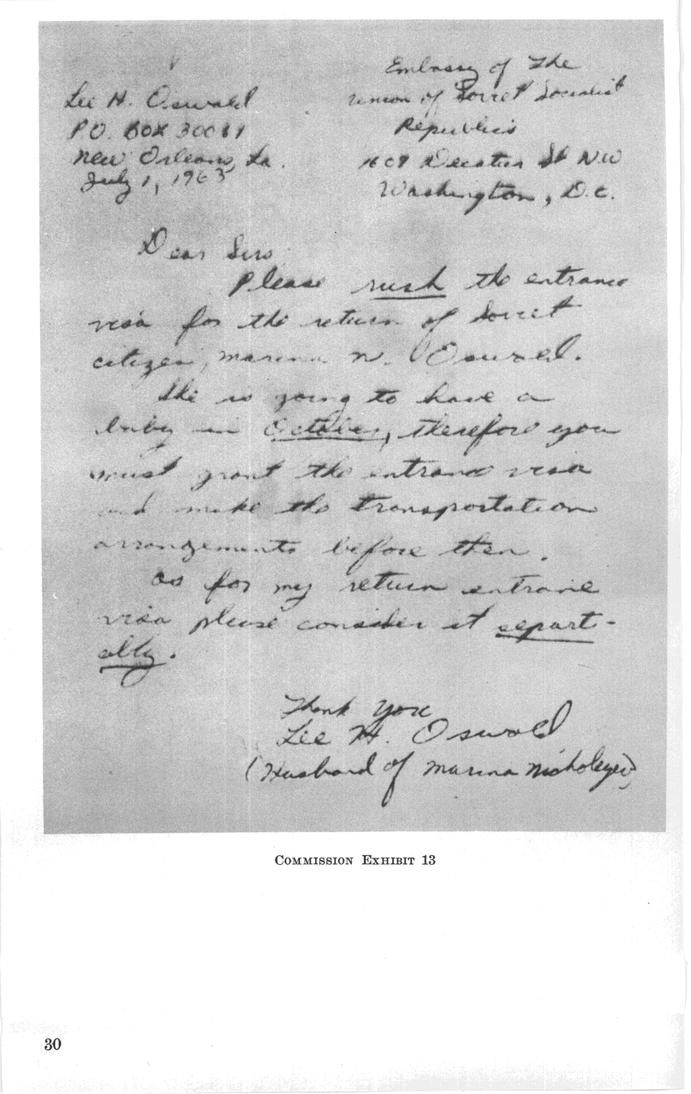 Lee H. Oswald
P.O. Box 30061
New Orleans, La.
July 1, 1963
Embassy of The
Union of Soviet Socialist
Republics
1609 Decatur St NW
Washington, D.C.
Dear Sirs
Please rush the entrance
visa for the return of Soviet
citizen, Marina N. Oswald.
She is going to have a
baby in October, therefore you
must grant the entrance visa
and make the transportation
arrangements before then.
As for my return entrance
visa please consider it separt-
ally.
Thank you
Lee H. Oswald
(Husband of Marina Nicholeyev)
COMMISSION EXHIBIT 13
30